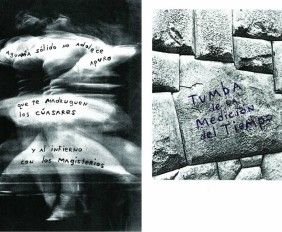 sólido no adolece
apuro
que te madruguen
los cúasares
y al infierno
con los magisterios
TUMBA
de la
Medición
del Tiempo